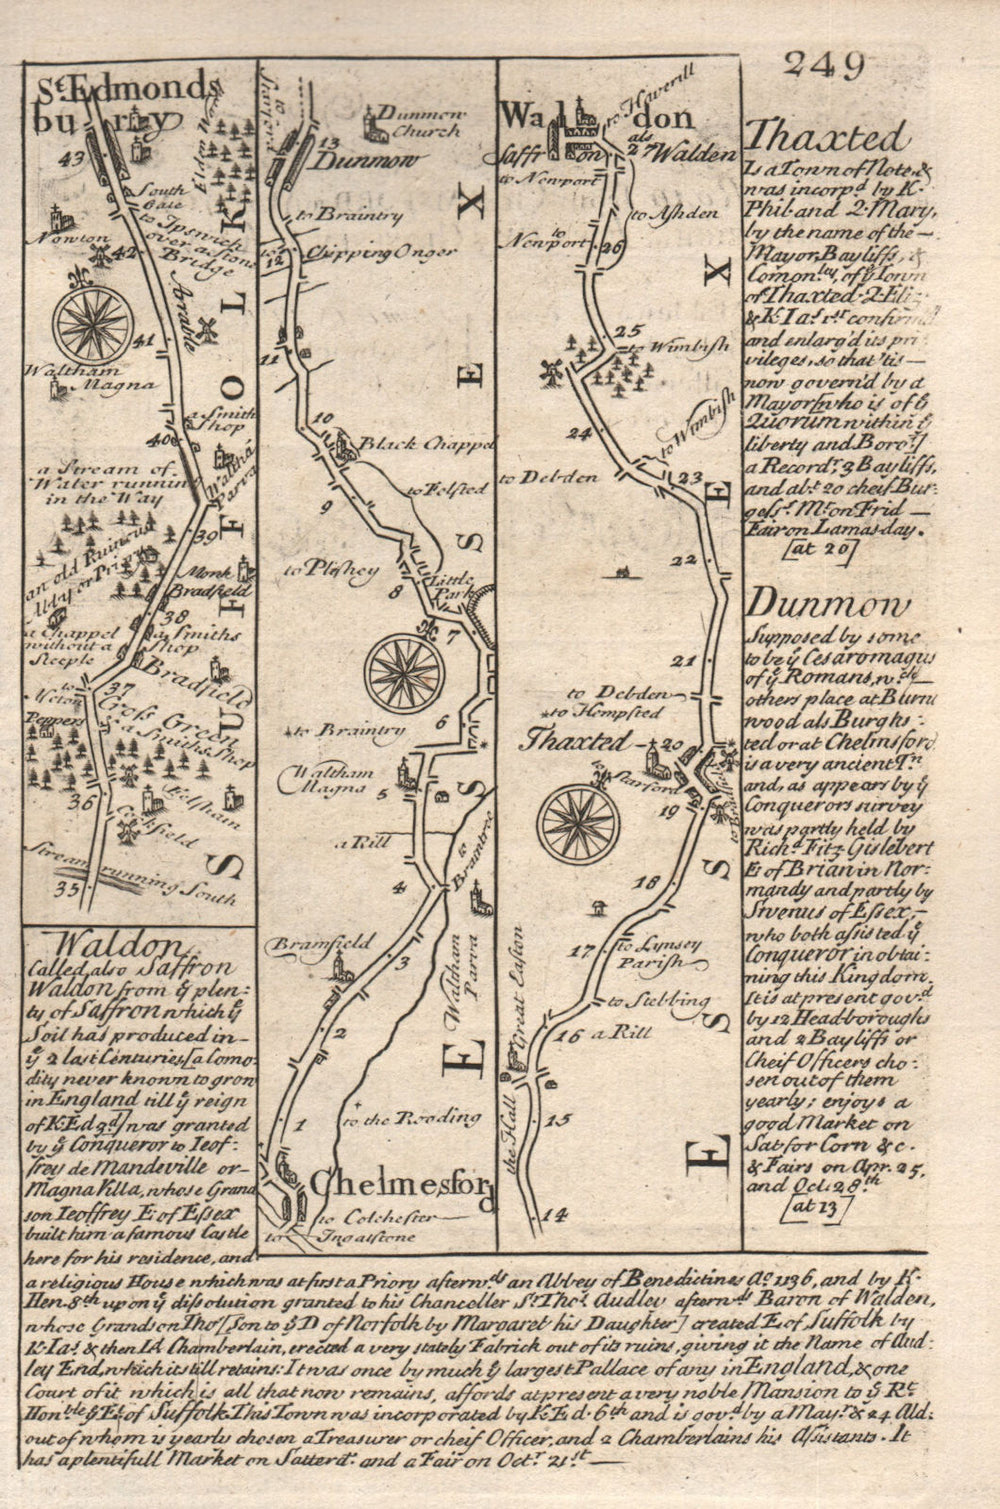 249
St. Edmonds
bury
43
South
Gate
to Ipswich
over a stone
Bridge
Nowton
42
Arrable
41
Waltham
Magna
a Smiths
Shop
40
Walthā
Parva
a Stream of
Water runnin
in the Way
39
an old Ruinous
Abby or Priory
Monk
Bradfield
38
a Chappel
without a
Steeple
a Smiths
Shop
Bradfield
37
to
Welton
Cross Green
a Smiths Shop
Peppers
36
Felsham
Cockfield
Stream running South
35
SUFFOLK
13
Dunmow
Dunmow
Church
to Braintry
12
Chipping Onger
11
10
Black Chappel
to Felsted
9
to Pleshey
8
Little
Park
7
6
to Braintry
Waltham
Magna
5
a Rill
to
Braintree
4
Bramfield
3
Waltham
Parva
2
1
to the Rooding
Chelmesford
to Colchester
to Ingatstone
ESSEX
Waldon
als
Saffron Walden
to Haverill
27
to Newport
to Ashden
to
Newport
26
25
to Wimbish
24
to Wimbish
to Debden
23
22
21
to Debden
to Hempsted
Thaxted
20
to Starford
19
18
17
to Lynsey
Parish
to Stebbing
16
a Rill
Great Easton
15
the Hall
14
ESSEX
Thaxted
Is a Town of Note, &
was incorp.d by K.
Phil. and 2. Mary,
by the name of the
Mayor, Bayliffs, &
Comon.ley, of ye Town
of Thaxted. 2. Eliz
& K. Ia.s 1st confirm'd
and enlarg'd its pri
vileges, so that 'tis
now govern'd by a
Mayor [who is of ye
Quorum within ye
liberty and Boro:]
a Record.r 3 Bayliffs,
and ab.t 20 cheif Bur:
gess.s Mt on Frid
Fair on Lamas-day.
[at 20]
Dunmow
Supposed by some
to be ye Cesaromagus
of ye Romans, wch
others place at Burn
wood als Burghs:
ted or at Chelmsford
is a very ancient Tn
and, as appears by ye
Conquerors survey
was partly held by
Richd Fitz Gislebert
E of Brian in Nor:
mandy and partly by
Swenus of Essex,
who both assisted ye
Conqueror in obtai:
ning this Kingdom.
It is at present gov.d
by 12 Headboroughs
and 2 Bayliffs or
Cheif Officers cho:
sen out of them
yearly; enjoys a
good Market on
Sat for Corn & c.
& Fairs on Apr. 25,
and Oct. 28th
[at 13]
Waldon,
Called also Saffron
Waldon from ye plen:
ty of Saffron which ye
Soil has produced in
ye 2 last Centuries, [a Como:
dity never known to grow
in England till ye reign
of K. Ed 3d] was granted
by ye Conqueror to Ieof:
frey de Mandeville or
Magna Villa, whose Grand
son Ieoffrey E of Essex
built him a famous Castle
here for his residence, and
a religious House which was at first a Priory afterw.ds an Abbey of Benedictines Ao. 1136, and by K.
Hen. 8th upon ye dissolution granted to his Chanceller Sr. Thos. Audley afterw.ds Baron of Walden,
whose Grandson Tho.s [Son to ye D of Norfolk by Margaret his Daughter] created E of Suffolk by
K. Ia.s & then Ld Chamberlain, erected a very stately Fabrick out of its ruins, giving it the Name of Aud:
ley End, which it still retains: It was once by much ye largest Pallace of any in England, & one
Court of it which is all that now remains, affords at present a very noble Mansion to ye Rt.
Hon.ble ye E. of Suffolk. This Town was incorporated by K Ed. 6th and is gov.d by a May.r & 24 Ald:
out of whom is yearly chosen a Treasurer or cheif Officer, and 2 Chamberlains his Assistants. It
has a plentifull Market on Satterd. and a Fair on Oct.r 21st